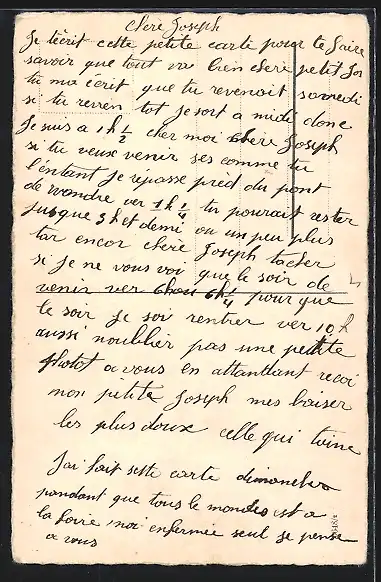 cheré Joseph
Je técrit cette petite carte pour te faire
savoir que tout va bien cheré petit Jos
tu ma écrit que tu revenoit samedi
si tu revien tot je sort a midi donc
Je suis a 1h ½ cher moi chere Joseph
si tu veux venir ses comme tu
l'entant je répasse prèd du pont
de wondre ver 1h ¼ tu pourait rester
jusque 3h et demi ou un peu plus
tar encor cheré Joseph tacher
si je ne vous voi que le soir de
venir ver 6h ¼ pour que
le soir je soi rentrer ver 10h
aussi noublier pas une petite
photot a vous en attandant recoi
mon petite Joseph mes baiser
les plus doux celle qui taime
Jai fait sette carte dimanche
pandant que tous le mondes est a
la foire moi enfermée seul je pense
a vous